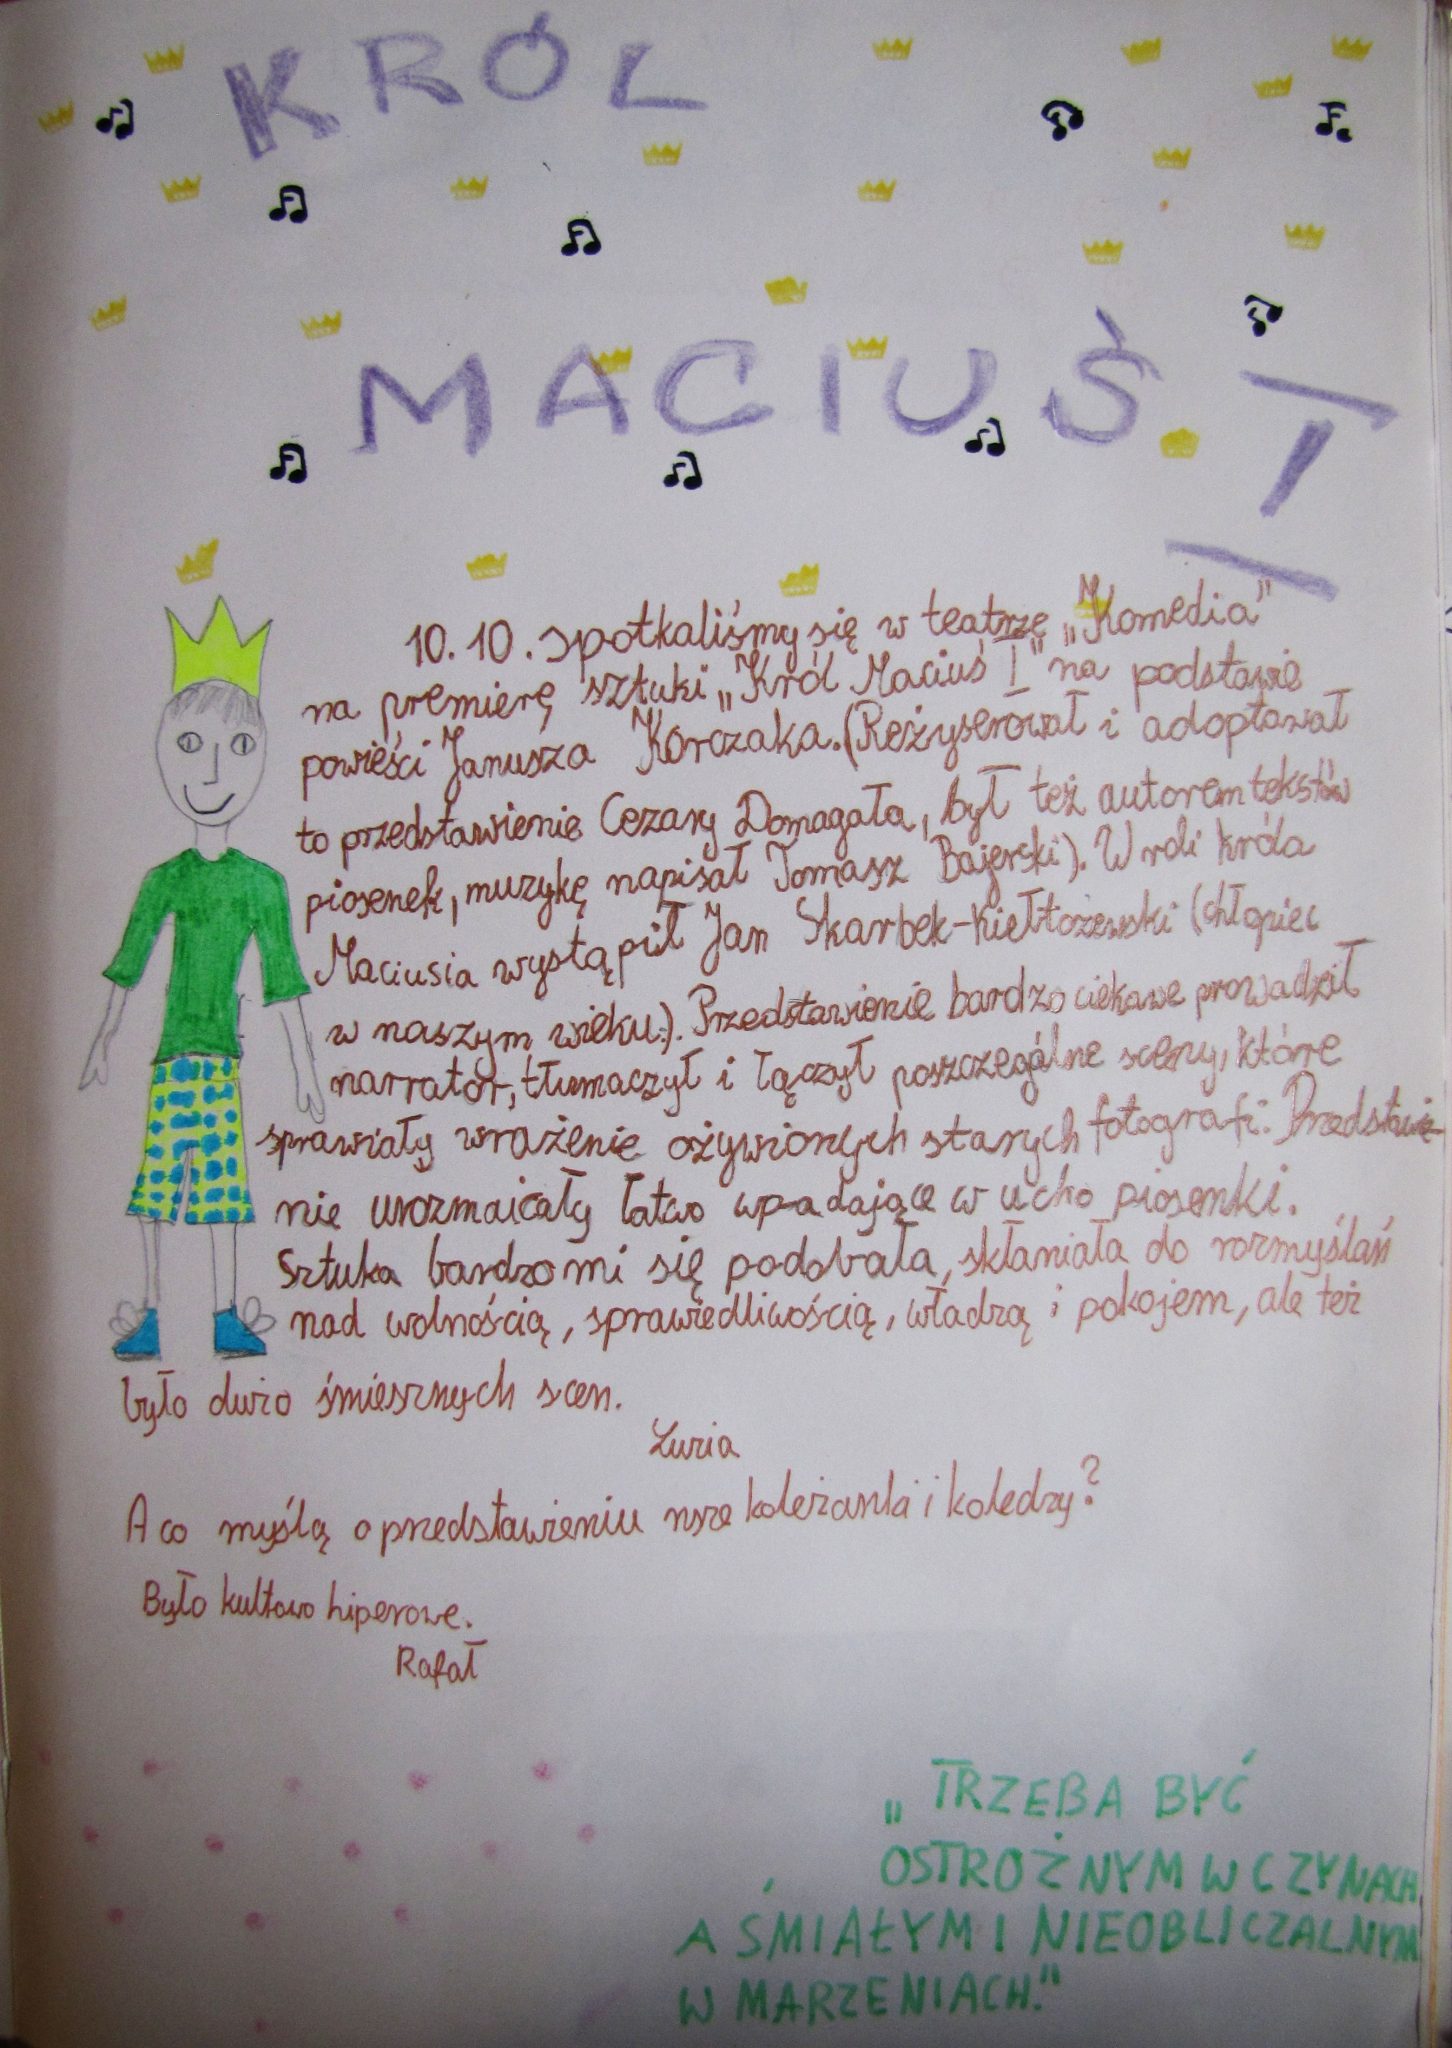 KRÓL
MACIUŚ I
10.10. spotkaliśmy się w teatrze „Komedia"
na premierę sztuki „Król Maciuś I" na podstawie
powieści Janusza Korczaka. (Reżyserował i adoptował
to przedstawienie Cezary Domagała, był też autorem tekstów
piosenek, muzykę napisał Tomasz Bajerski). W roli króla
Maciusia wystąpił Jan Skarbek-Kiełtożewski (chłopiec
w naszym wieku.). Przedstawienie bardzo ciekawe prowadził
narrator, tłumaczył i łączył poszczególne sceny, które
sprawiały wrażenie ożywionych starych fotografi. Przedstawie-
nie urozmaicały łatwo wpadające w ucho piosenki.
Sztuka bardzo mi się podobała, skłaniała do rozmyślań
nad wolnością, sprawiedliwością, władzą i pokojem, ale też
było dużo śmiesznych scen.
Zuzia
A co myślą o przedstawieniu nsze koleżanki i koledzy?
Było kultowo hiperowe.
Rafał
„TRZEBA BYĆ
OSTROŻNYM W CZYNACH
A ŚMIAŁYM I NIEOBLICZALNYM
W MARZENIACH."